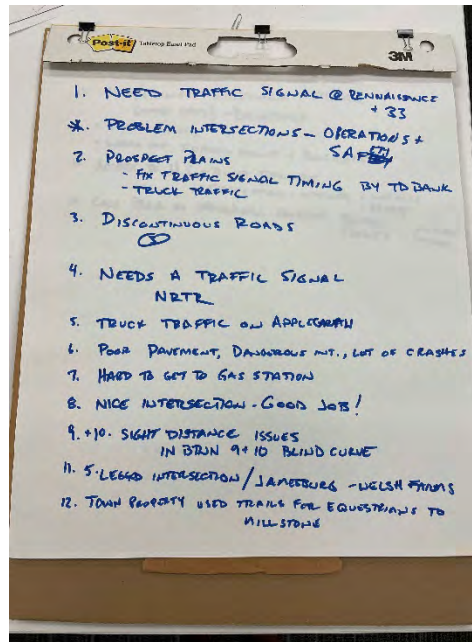 Post-it Tabletop Easel Pad
3M
1. NEED TRAFFIC SIGNAL @ RENNAISANCE
+ 33
*. PROBLEM INTERSECTIONS - OPERATIONS +
SAFETY
2. PROSPECT PLAINS
- FIX TRAFFIC SIGNAL TIMING BY TD BANK
- TRUCK TRAFFIC
3. DISCONTINUOUS ROADS
4. NEEDS A TRAFFIC SIGNAL
NRTR
5. TRUCK TRAFFIC ON APPLEGARTH
6. POOR PAVEMENT, DANGEROUS INT., LOT OF CRASHES
7. HARD TO GET TO GAS STATION
8. NICE INTERSECTION - GOOD JOB!
9. +10. SIGHT DISTANCE ISSUES
IN BTWN 9+10 BLIND CURVE
11. 5-LEGGED INTERSECTION / JAMESBURG - WELSH FARMS
12. TOWN PROPERTY USED TRAILS FOR EQUESTRIANS TO
MILLSTONE